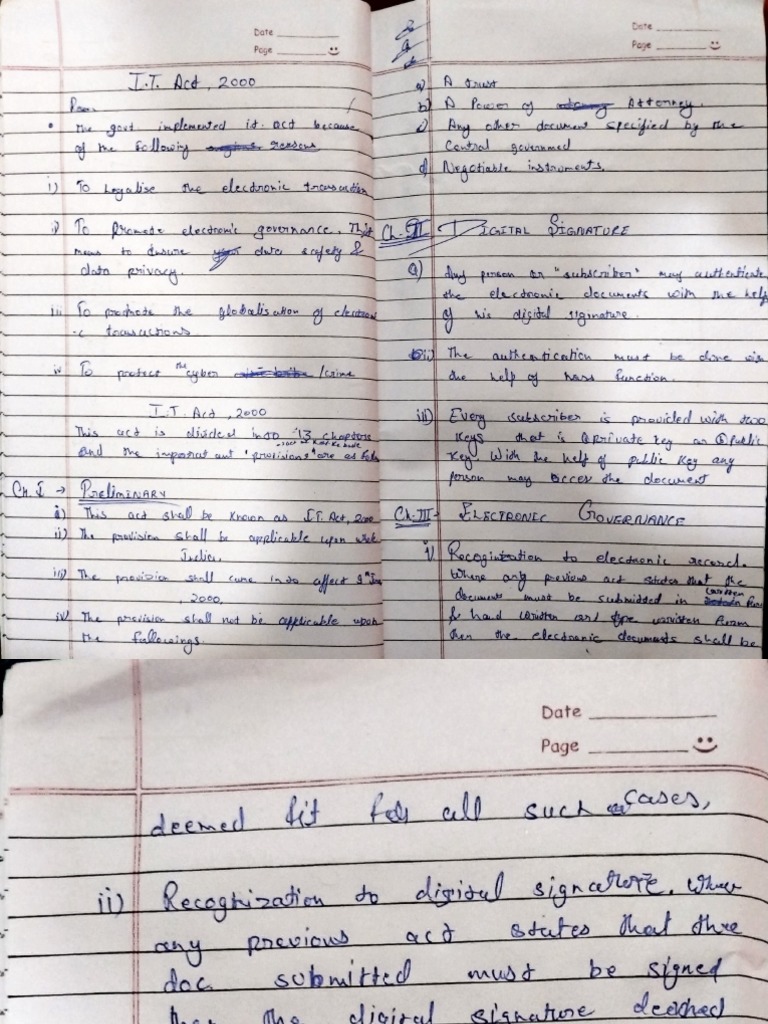 Date
Page
I.T. Act, 2000
• The govt implemented it. act because
of the following reasons
i) To Legalise the electronic transaction
ii) To Promote electronic governance. This
means to Ensure data safety &
data privacy.
iii To promote the globalisation of electron
-c transactions
iv To protect the cyber /crime
I.T. Act, 2000
This act is divided into 13 chapters
and the important 'provisions' are as
Ch. I → PRELIMINARY
i) This act shall be known as I.T. Act, 2000
ii) The provision shall be applicable upon
India.
iii) The provision shall come into affect 9th
2000.
iv The provision shall not be applicable upon
the followings.
Date
Page
a) A trust
b) A Power of Attorney.
c) Any other document specified by the
Central
d) Negotiable instruments.
Ch. II DIGITAL SIGNATURE
Any person or "subscriber" may authenticate
the electronic documents with the help
of his digital signature.
ii) The authentication must be done with
the help of hass function.
iii) Every subscriber is provided with two
Keys that is private Key or Public
Key. With the help of public Key any
person may acces the document
Ch-III- ELECTRONIC GOVERNANCE
i) Recoginization to electronic record.
Where any previous act states that the
document must be submitted in written
& hand written or/ type written form
then the electronic documents shall be
Date
Page
deemed fit for all such cases,
ii) Recognization to digital signature. Where
any previous act states that the
doc. submitted must be signed
then the digital signature deemed